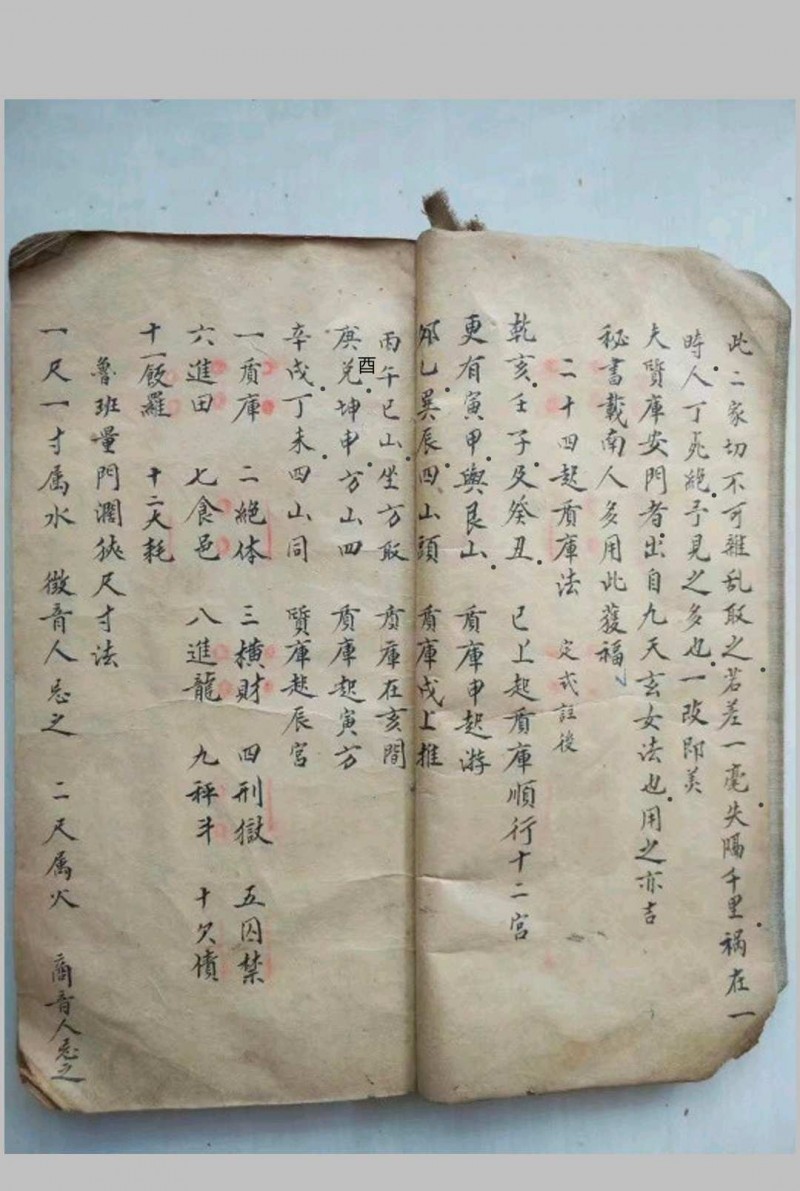 此二家切不可雜乱取之若差一毫失隔千里禍在一
時人丁死絶予見之多也一改即美
夫質庫安門者出自九天玄女法也用之亦吉
秘書載南人多用此獲福
二十四起質庫法 定式註後
乾亥壬子及癸丑 已上起質庫順行十二宮
更有寅甲與艮山 質庫申起游
夘乙巽辰四山頭 質庫戌上推
丙午巳山坐方取 質庫在亥間
庚兑酉坤申方山四 質庫起寅方
辛戌丁未四山同 質庫起辰宮
一質庫 二絶体 三横財 四刑獄 五囚禁
六進田 七食邑 八進龍 九秤斗 十欠債
十一飯羅 十二大耗
魯班量門濶狹尺寸法
一尺一寸属水 徵音人忌之 二尺属火 商音人忌之